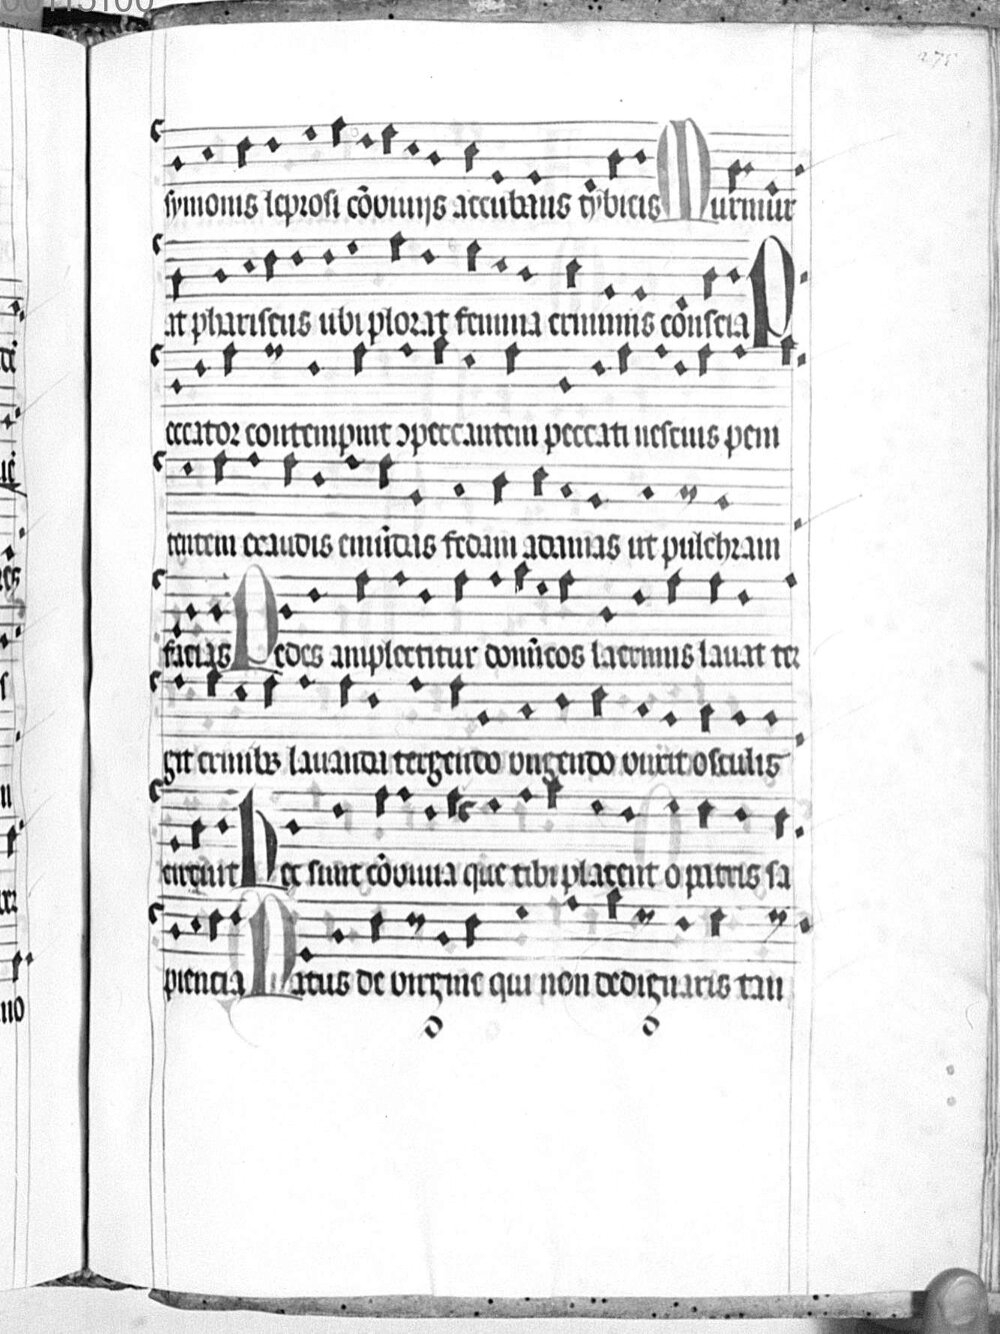 275
symonis leprosi cōviviis accubans tybicis Murmur
at phariseus ubi plorat femina criminis cōnscia P
eccator contempnit ɔpeccantem peccati nescius peni
tentem exaudis emūdas fedam adamas ut pulchram
facias Pedes amplectitur domīcos lacrimis lauat ter
git crinibꝫ lauando tergendo ungendo unxit osculis
circuit Hec sunt cōuiuia que tibi placent o patris sa
piencia Natus de virgine qui non dedignaris tau